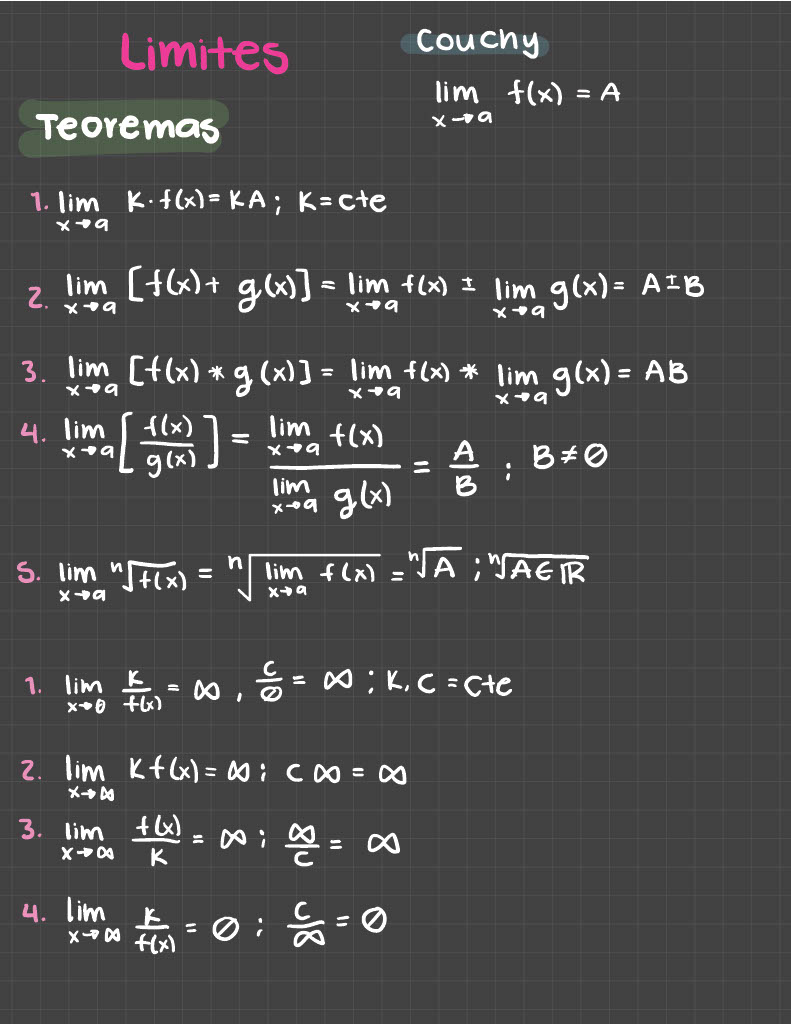 Limites
Couchy
lim x→a f(x) = A
Teoremas
1. lim x→a K·f(x) = KA ; K = cte
2. lim x→a [f(x) + g(x)] = lim x→a f(x) ± lim x→a g(x) = A ± B
3. lim x→a [f(x) * g(x)] = lim x→a f(x) * lim x→a g(x) = AB
4. lim x→a [f(x)/g(x)] = lim x→a f(x) / lim x→a g(x) = A/B ; B ≠ 0
5. lim x→a ⁿ√f(x) = ⁿ√(lim x→a f(x)) = ⁿ√A ; ⁿ√A ∈ ℝ
1. lim x→0 K/f(x) = ∞ , C/0 = ∞ ; K, C = cte
2. lim x→∞ K f(x) = ∞ ; C ∞ = ∞
3. lim x→∞ f(x)/K = ∞ ; ∞/C = ∞
4. lim x→∞ K/f(x) = 0 ; C/∞ = 0